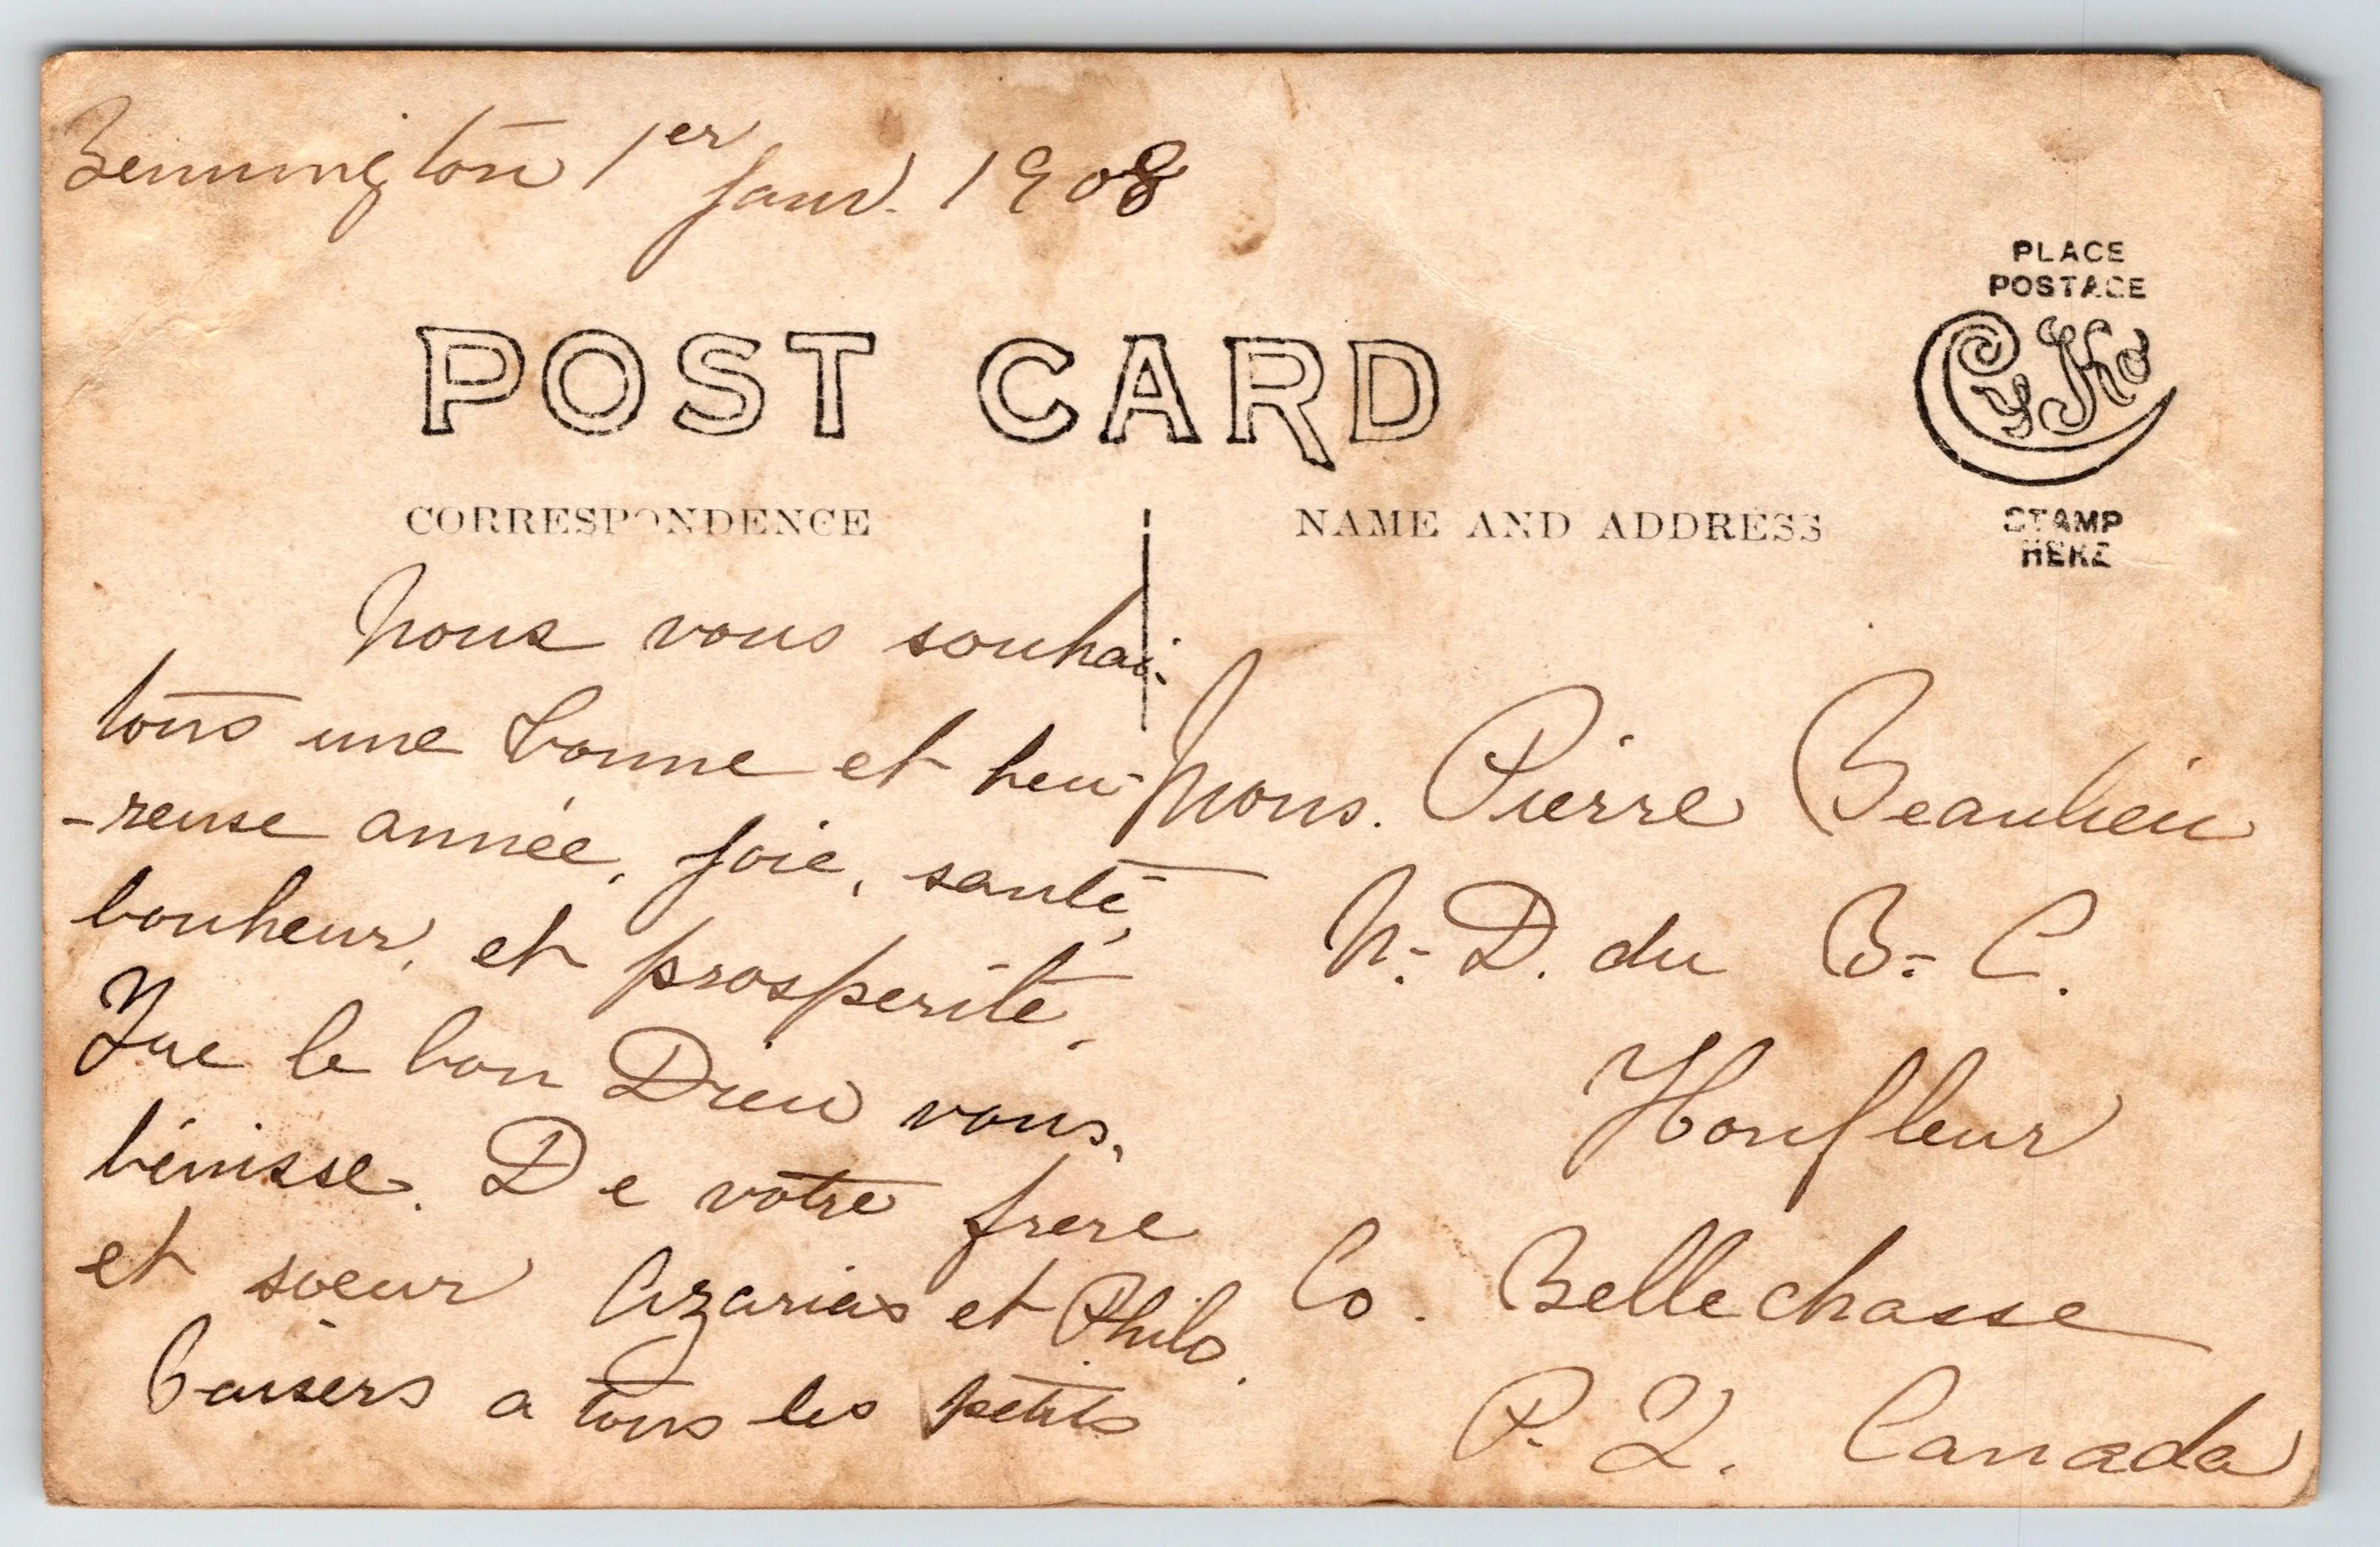 Bennington 1er Janv. 1908
POST CARD
CORRESPONDENCE
NAME AND ADDRESS
PLACE
POSTAGE
CyKo
STAMP
HERE
Nous vous souhai-
tons une bonne et heu-
-reuse année, joie, santé,
bonheur, et prosperité.
Que le bon Dieu vous
bénisse. De votre frere
et soeur Azarias et Philo.
baisers a tous les petits
Mons. Pierre Beaulieu
N.-D. du B.-C.
Honfleur
Co. Bellechasse
P. Q. Canada